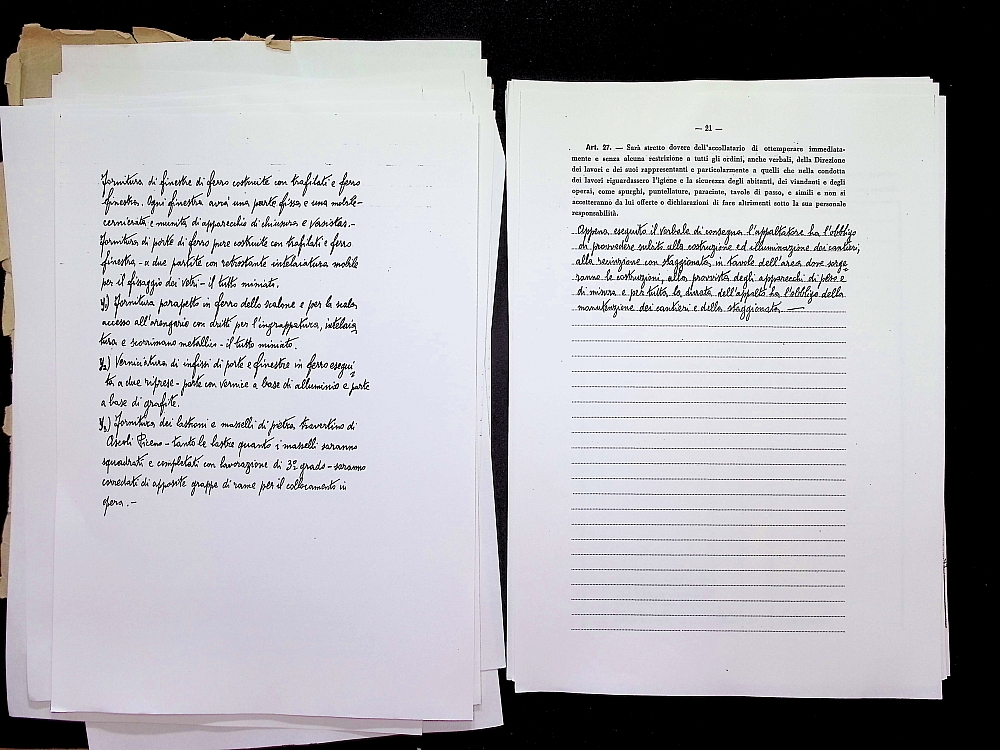 Fornitura di finestre di ferro costruite con trafilati e ferro
finestra. Ogni finestra avrà una parte fissa e una molate-
cernierata e munita di apparecchio di chiusura e vasistas.-
Fornitura di porte di ferro pure costruite con trafilati e ferro
finestra - a due partite con retrostante intelaiatura mobile
per il fissaggio dei vetri - il tutto miniati.
) Fornitura parapetto in ferro dello scalone e per la scala
accesso all'arengario con dritti per l'ingrappatura, intelaia
tura e scorrimano metallico - il tutto miniato.
) Verniciatura di infissi di porte e finestre in ferro esegui
ta a due riprese - parte con vernice a base di alluminio e parte
a base di grafite.
) Fornitura dei lastroni e masselli di pietra travertino di
Ascoli Piceno - tanto le lastre quanto i masselli saranno
squadrati e completati con lavorazione di 3º grado - saranno
corredati di apposite grappe di rame per il collocamento in
opera.-
— 21 —
Art. 27. — Sarà stretto dovere dell'accollatario di ottemperare immediata-
mente e senza alcuna restrizione a tutti gli ordini, anche verbali, della Direzione
dei lavori e dei suoi rappresentanti e particolarmente a quelli che nella condotta
dei lavori riguardassero l'igiene e la sicurezza degli abitanti, dei viandanti e degli
operai, come spurghi, puntellature, paracinte, tavole di passo, e simili e non si
accetteranno da lui offerte o dichiarazioni di fare altrimenti sotto la sua personale
responsabilità.
Appena eseguito il verbale di consegna l'appaltatore ha l'obbligo
di provvedere subito alla costruzione ed illuminazione dei cantieri,
alla recinzione con staggionata, in tavole dell'area dove sorge-
ranno le costruzioni, alla provvista degli apparecchi di peso e
di misura e per tutta la durata dell'appalto ha l'obbligo della
manutenzione dei cantieri e della staggionata. —